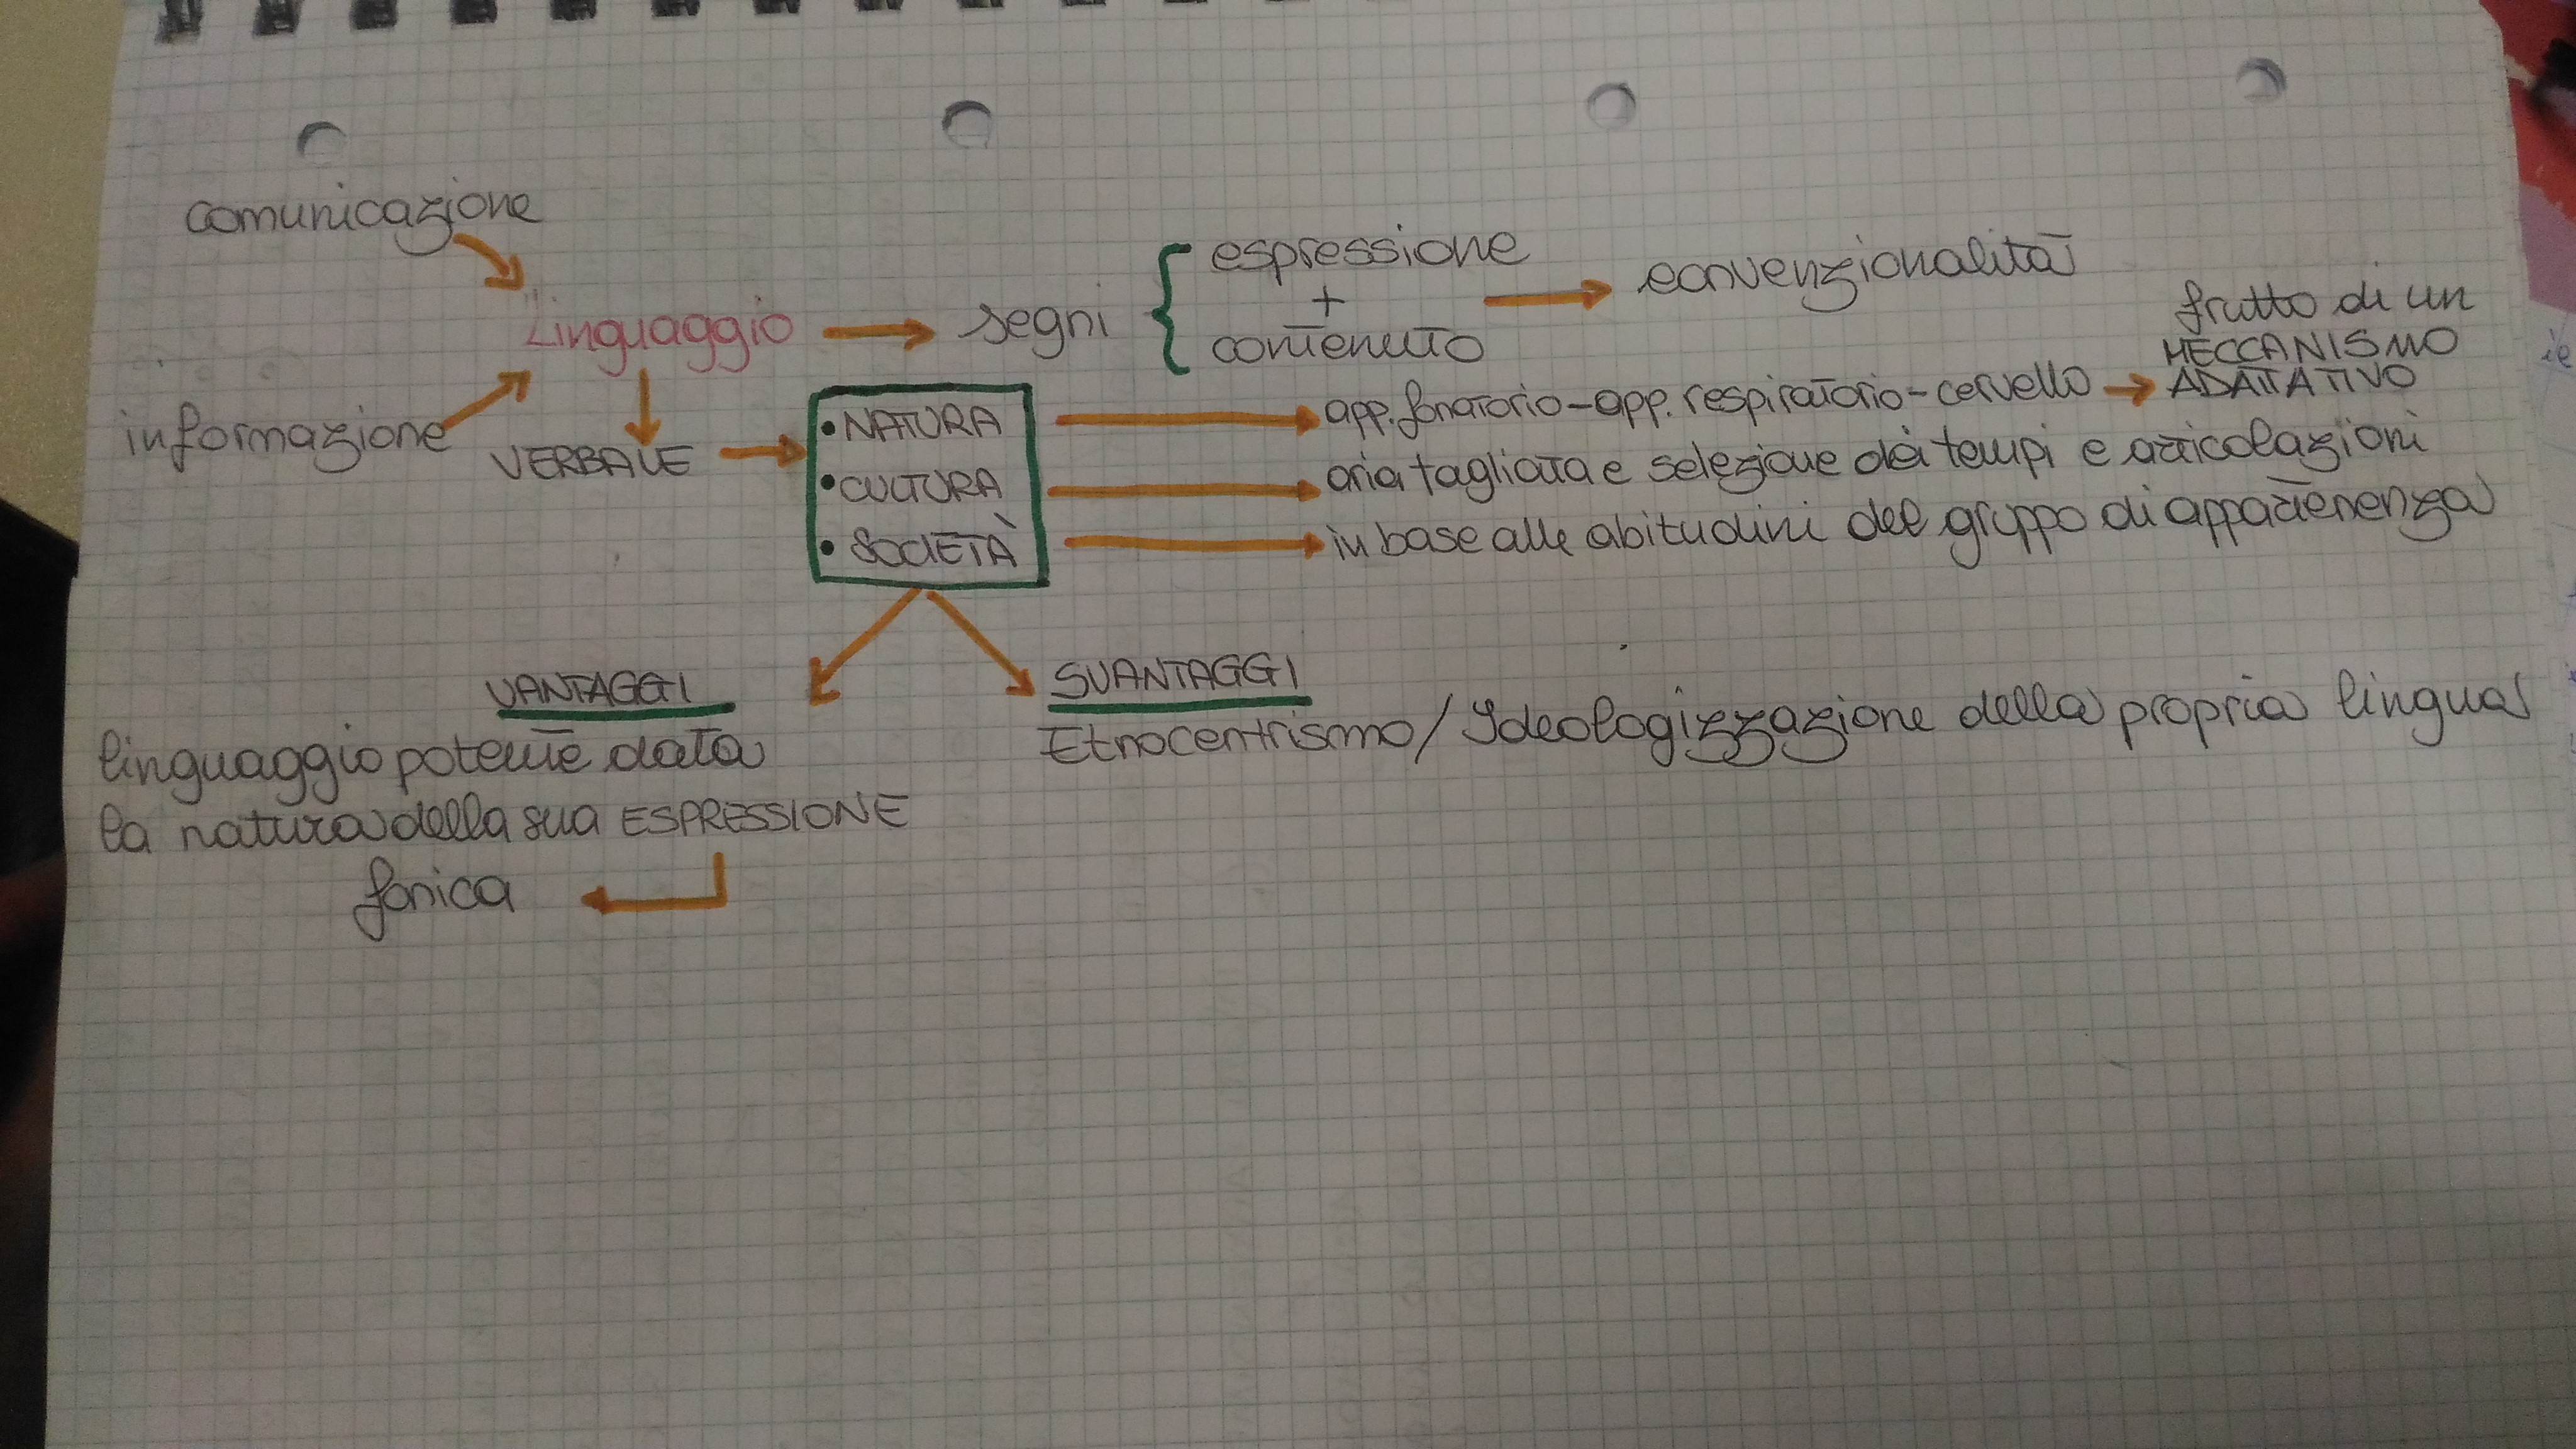 comunicazione
Linguaggio
informazione
VERBALE
segni
espressione
+
contenuto
convenzionalità
• NATURA
• CULTURA
• SOCIETÀ
app. fonatorio - app. respiratorio - cervello
frutto di un
MECCANISMO
ADATTATIVO
aria tagliata e selezione dei tempi e articolazioni
in base alle abitudini del gruppo di appartenenza
VANTAGGI
linguaggio potente data
la natura della sua ESPRESSIONE
fonica
SVANTAGGI
Etnocentrismo / Ideologizzazione della propria lingua